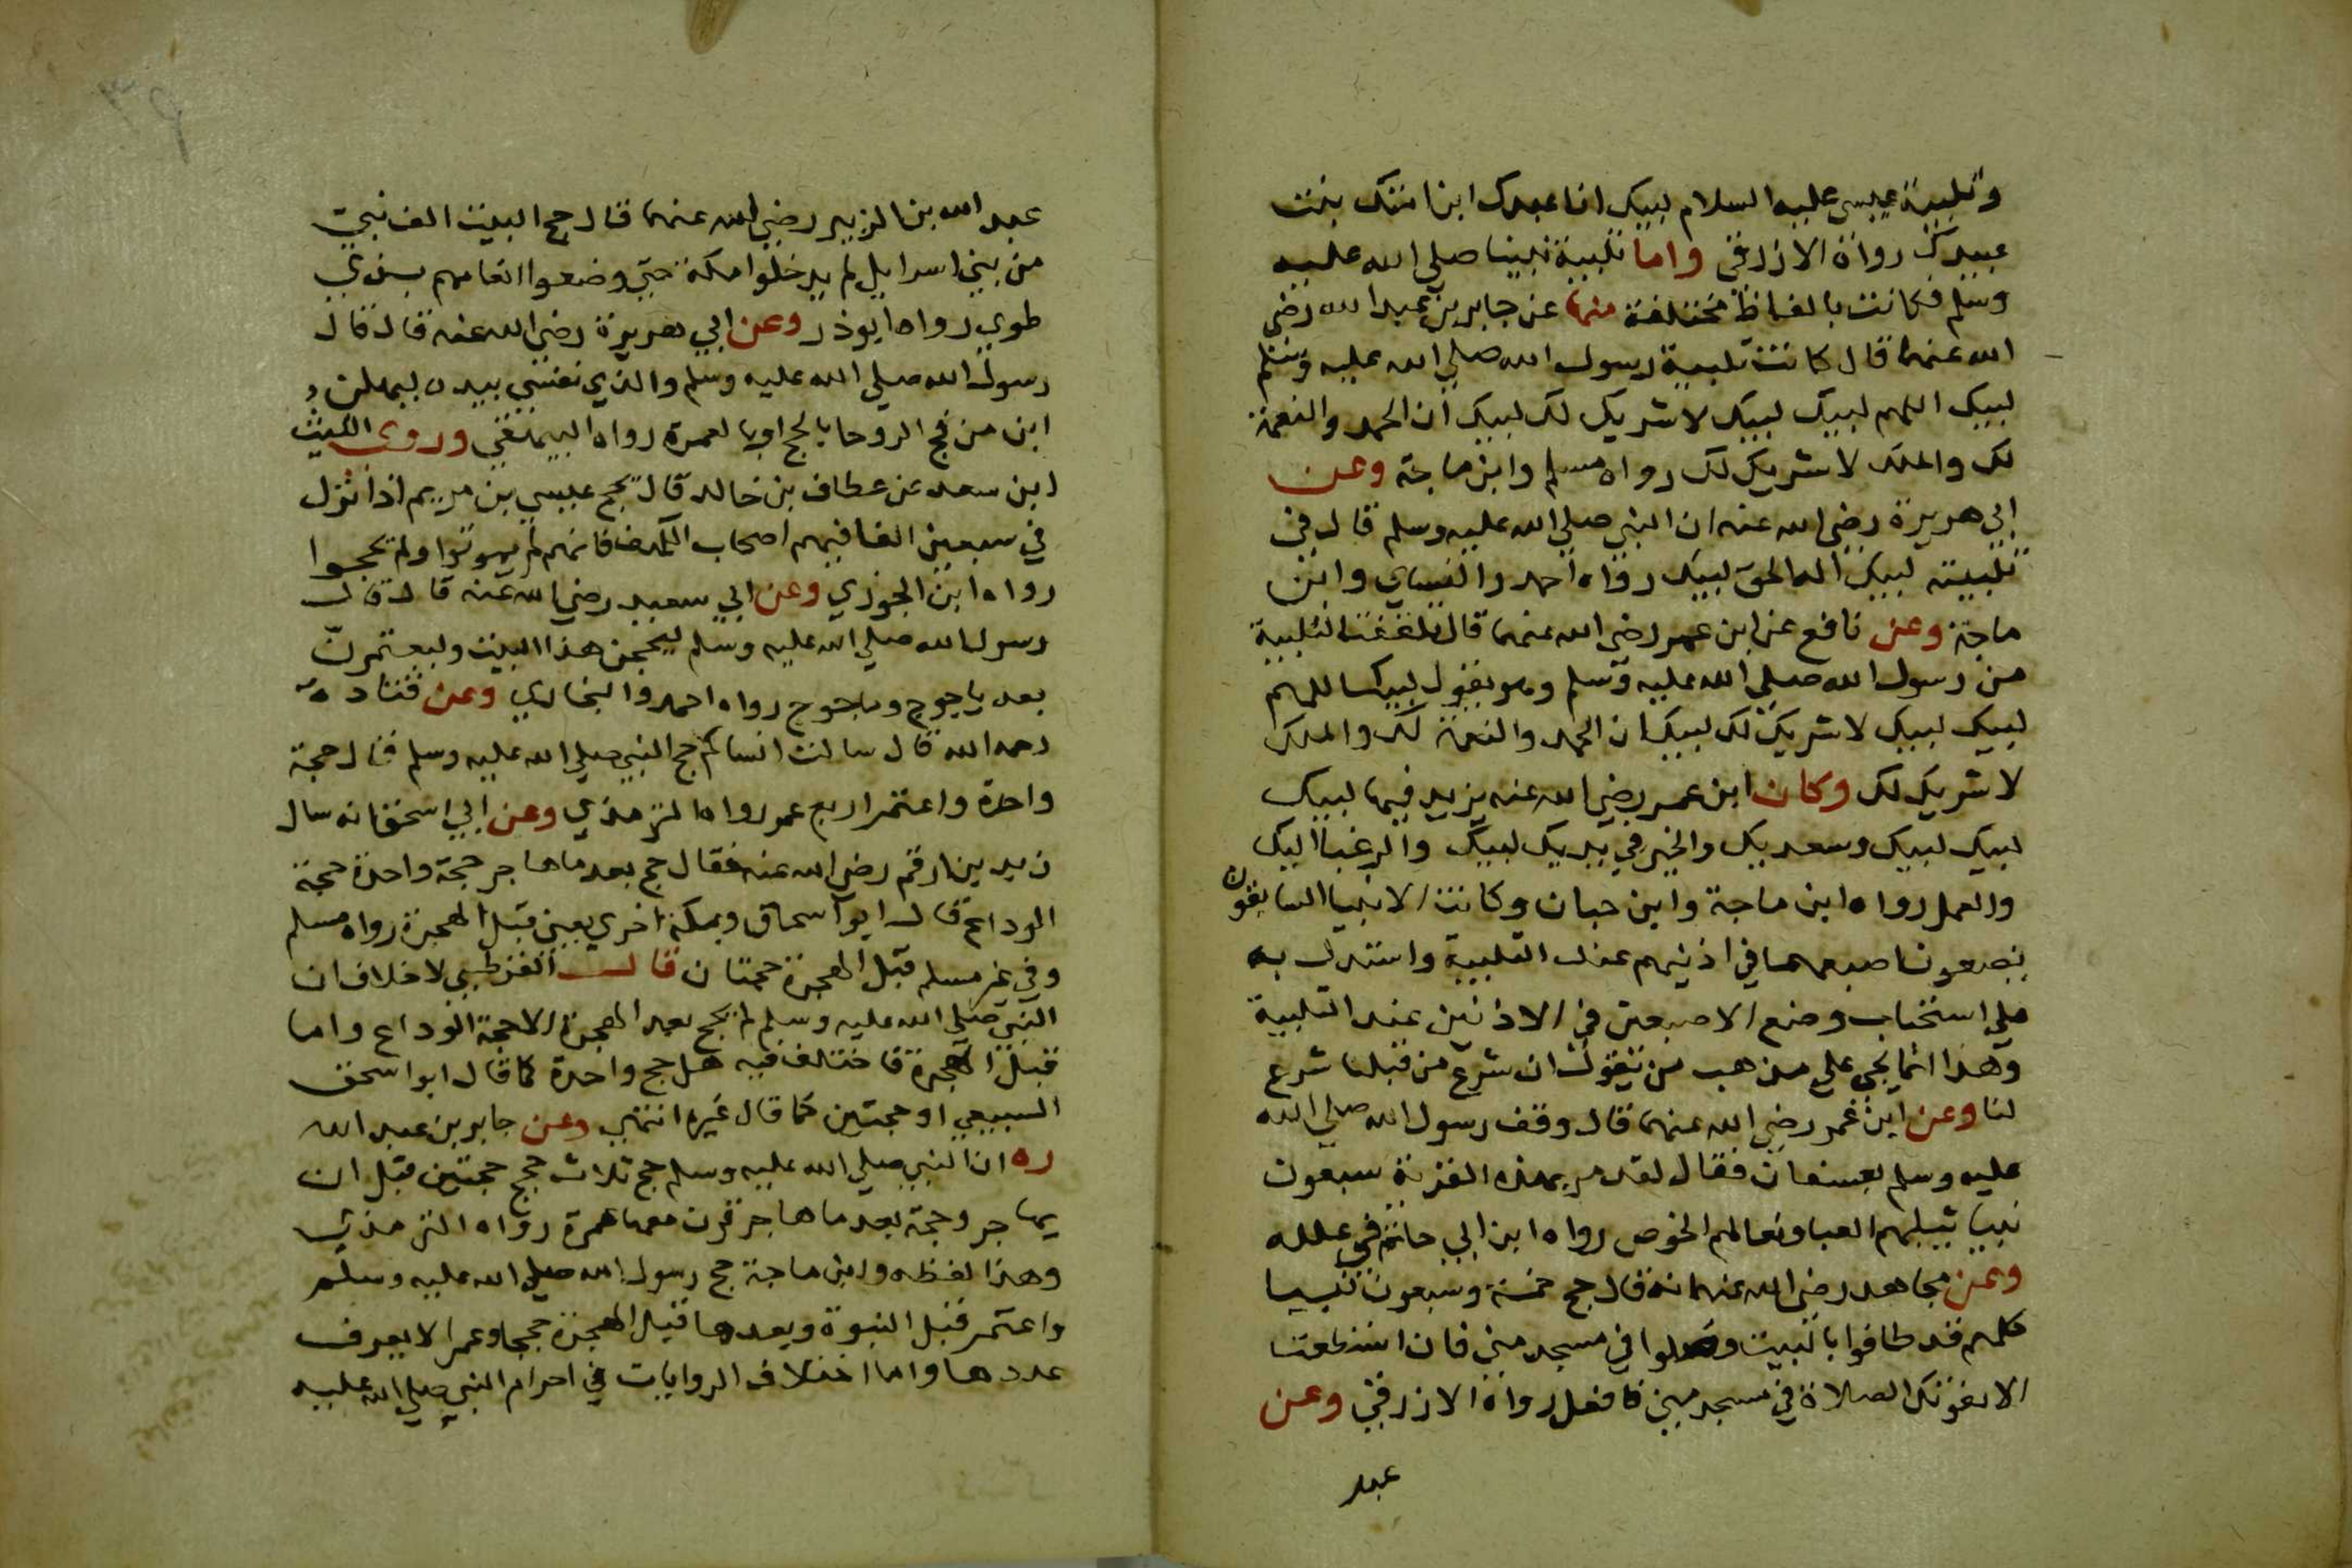 وتلبية عيسى عليه السلام لبيك انا عبدك ابن امتك بنت
عبيدك رواه الازرقي واما تلبية نبينا صلى الله عليه
وسلم فكانت بالفاظ مختلفة منها عن جابر بن عبد الله رضي
الله عنهما قال كانت تلبية رسول الله صلي الله عليه وسلم
لبيك اللهم لبيك لبيك لا شريك لك لبيك ان الحمد والنعمة
لك والملك لا شريك لك رواه مسلم وابن ماجة وعن
ابي هريرة رضي الله عنه ان النبي صلي الله عليه وسلم قال في
تلبيته لبيك اله الحق لبيك رواه احمد والنساي وابن
ماجة وعن نافع عن ابن عمر رضي الله عنهما قال تلقفت التلبية
من رسول الله صلي الله عليه وسلم وهو يقول لبيك اللهم
لبيك لبيك لا شريك لك لبيك ان الحمد والنعمة لك والملك
لا شريك لك وكان ابن عمر رضي الله عنه يزيد فيها لبيك
لبيك لبيك وسعديك والخير في يديك لبيك والرغبا اليك
والعمل رواه ابن ماجة وابن حبان وكانت الانبيا السابقون
يضعون اصبعهما في اذنيهم عند التلبية واستدل به
علي استحباب وضع الاصبعين في الاذنين عند التلبية
وهذا انما يجي علي مذهب من يقول ان شرع من قبلنا شرع
لنا وعن ابن عمر رضي الله عنهما قال وقف رسول الله صلي الله
عليه وسلم بعسفان فقال لقد مر بهذه القرية سبعون
نبيا ثيابهم العبا ونعالهم الخوص رواه ابن ابي حاتم في علله
وعن مجاهد رضي الله عنهما انه قال حج خمسة وسبعون نبيا
كلهم قد طافوا بالبيت وصلوا في مسجد مني فان استطعت
الا يفوتك الصلاة في مسجد مني فافعل رواه الازرقي وعن
عبد
عبد الله بن الزبير رضي الله عنهما قال حج البيت الف نبي
من بني اسرايل لم يدخلوا مكة حتي وضعوا انعامهم بذي
طوي رواه ابوذر وعن ابي هريرة رضي الله عنه قال قال
رسول الله صلي الله عليه وسلم والذي نفسي بيده ليهلن
ابن من فج الروحا بالحج او بالعمرة رواه البيهقي وروى الليث
ابن سعد عن عطاف بن خالد قال يحج عيسي بن مريم اذا نزل
في سبعين الفا فيهم اصحاب الكهف فانهم لم يموتوا ولم يحجوا
رواه ابن الجوزي وعن ابي سعيد رضي الله عنه قال قال
رسول الله صلي الله عليه وسلم ليحجن هذا البيت وليعتمرن
بعد ياجوج وماجوج رواه احمد والبخاري وعن قتادة
رحمه الله قال سالت انسا كم حج النبي صلي الله عليه وسلم قال حجة
واحدة واعتمر اربع عمر رواه الترمذي وعن ابي اسحق انه سال
زيد بن ارقم رضي الله عنه فقال حج بعد ما هاجر حجة واحدة حجة
الوداع قال ابو اسحاق وبمكة اخري يعني قبل الهجرة رواه مسلم
وفي غير مسلم قبل الهجرة حجتان قال القرطبي لا خلاف ان
النبي صلي الله عليه وسلم لم يحج بعد الهجرة الا حجة الوداع واما
قبل الهجرة فاختلف فيه هل حج واحدة كما قال ابو اسحق
السبيعي او حجتين كما قال غيره انتهي وعن جابر بن عبد الله
ره ان النبي صلي الله عليه وسلم حج ثلاث حجج حجتين قبل ان
يهاجر وحجة بعد ما هاجر قرن معها عمرة رواه الترمذي
وهذا لفظه وابن ماجة حج رسول الله صلي الله عليه وسلم
واعتمر قبل النبوة وبعدها قبل الهجرة حججا وعمرا لا يعرف
عددها واما اختلاف الروايات في احرام النبي صلي الله عليه